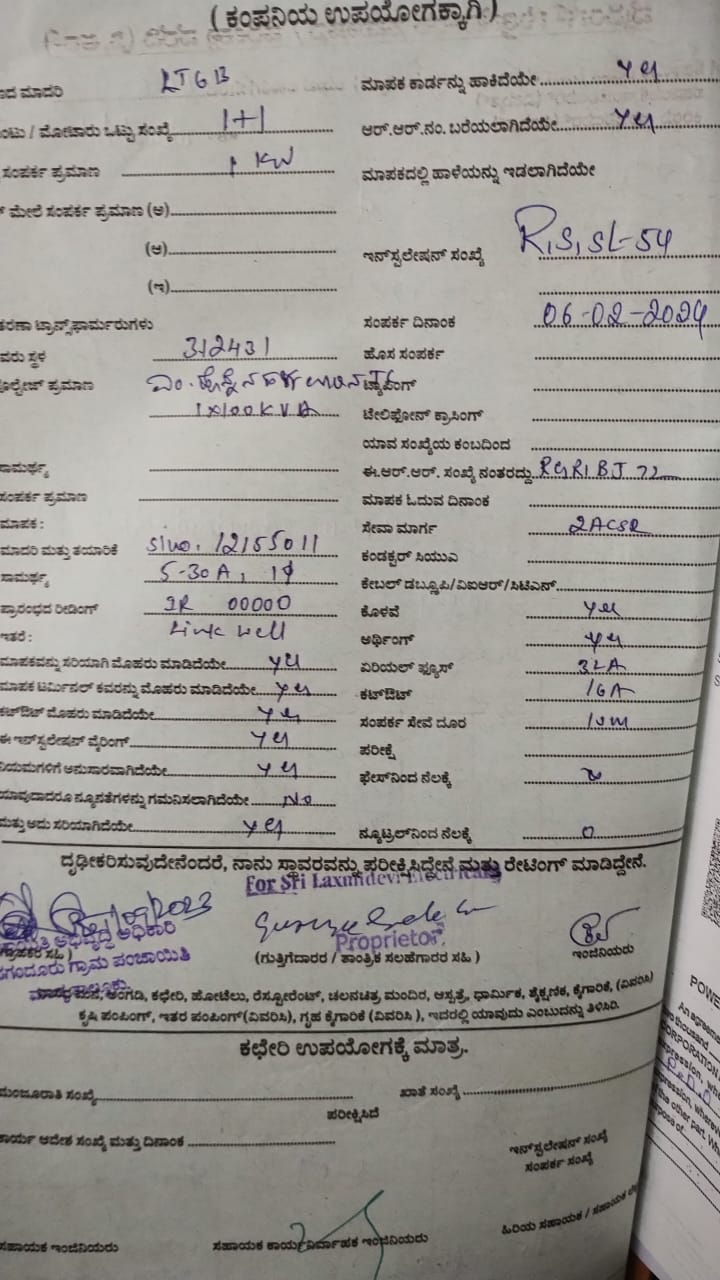 ( ಕಂಪನಿಯ ಉಪಯೋಗಕ್ಕಾಗಿ )
ಮಾದರಿ LTGB
ಮಾಪಕ ಕಾರ್ಡನ್ನು ಹಾಕಿದೆಯೇ yes
/ ಮೋಟಾರು ಒಟ್ಟು ಸಂಖ್ಯೆ 1+1
ಆರ್.ಆರ್.ನಂ. ಬರೆಯಲಾಗಿದೆಯೇ yes
ಸಂಪರ್ಕ ಪ್ರಮಾಣ 1 KW
ಮಾಪಕದಲ್ಲಿ ಹಾಳೆಯನ್ನು ಇಡಲಾಗಿದೆಯೇ
ಮೇಲೆ ಸಂಪರ್ಕ ಪ್ರಮಾಣ (ಅ)
(ಆ)
ಇನ್‌ಸ್ಟಲೇಷನ್ ಸಂಖ್ಯೆ R,S,SL-54
(ಇ)
ಟ್ರಾನ್ಸ್‌ಫಾರ್ಮರುಗಳು
ಸಂಪರ್ಕ ದಿನಾಂಕ 06-02-2024
ಸ್ಥಳ 312431
ಹೊಸ ಸಂಪರ್ಕ
ಪ್ರಮಾಣ
ಟ್ಯಾಪಿಂಗ್
1x100KVA
ಟೆಲಿಫೋನ್ ಕ್ರಾಸಿಂಗ್
ಯಾವ ಸಂಖ್ಯೆಯ ಕಂಬದಿಂದ
ಸಾಮರ್ಥ್ಯ
ಈ.ಆರ್.ಆರ್. ಸಂಖ್ಯೆ ನಂತರದ್ದು
ಸಂಪರ್ಕ ಪ್ರಮಾಣ
ಮಾಪಕ ಓದುವ ದಿನಾಂಕ
ಮಾಪಕ :
ಸೇವಾ ಮಾರ್ಗ 2ACSR
ಮಾದರಿ ಮತ್ತು ತಯಾರಿಕೆ Slno. 12155011
ಕಂಡಕ್ಟರ್ ಸಿಯುಎ
ಸಾಮರ್ಥ್ಯ 5-30A, 1φ
ಕೇಬಲ್ ಡಬ್ಲ್ಯೂಪಿ/ವಿಐಆರ್/ಸಿಟಿಎಸ್
ಪ್ರಾರಂಭದ ರೀಡಿಂಗ್ IR 00000
ಕೊಳವೆ yes
ಇತರೆ : Link well
ಅರ್ಥಿಂಗ್ yes
ಮಾಪಕವನ್ನು ಸರಿಯಾಗಿ ಮೊಹರು ಮಾಡಿದೆಯೇ yes
ಏರಿಯಲ್ ಫ್ಯೂಸ್ 32A
ಮಾಪಕ ಟರ್ಮಿನಲ್ ಕವರನ್ನು ಮೊಹರು ಮಾಡಿದೆಯೇ yes
ಕಟ್‌ಔಟ್ 16A
ಕಟ್‌ಔಟ್ ಮೊಹರು ಮಾಡಿದೆಯೇ yes
ಸಂಪರ್ಕ ಸೇವೆ ದೂರ 10m
ಈ ಇನ್‌ಸ್ಟಲೇಷನ್ ವೈರಿಂಗ್ yes
ಪರೀಕ್ಷೆ
ನಿಯಮಗಳಿಗೆ ಅನುಸಾರವಾಗಿದೆಯೇ yes
ಫೇಸ್‌ನಿಂದ ನೆಲಕ್ಕೆ
ಯಾವುದಾದರೂ ನ್ಯೂನತೆಗಳನ್ನು ಗಮನಿಸಲಾಗಿದೆಯೇ No
ಮತ್ತು ಅದು ಸರಿಯಾಗಿದೆಯೇ yes
ನ್ಯೂಟ್ರಲ್‌ನಿಂದ ನೆಲಕ್ಕೆ 0
ದೃಢೀಕರಿಸುವುದೇನೆಂದರೆ, ನಾನು ಸ್ಥಾವರವನ್ನು ಪರೀಕ್ಷಿಸಿದ್ದೇನೆ ಮತ್ತು ರೇಟಿಂಗ್ ಮಾಡಿದ್ದೇನೆ.
For Sri Laxmidevi Electricals
ಅಭಿವೃದ್ಧಿ ಅಧಿಕಾರಿ
Proprietor
ಇಂಜಿನಿಯರು
(ಗ್ರಾಹಕರ ಸಹಿ )
ಗ್ರಾಮ ಪಂಚಾಯಿತಿ
(ಗುತ್ತಿಗೆದಾರರ / ತಾಂತ್ರಿಕ ಸಲಹೆಗಾರರ ಸಹಿ )
ಅಂಗಡಿ, ಕಛೇರಿ, ಹೋಟೆಲು, ರೆಸ್ಟೋರೆಂಟ್, ಚಲನಚಿತ್ರ ಮಂದಿರ, ಆಸ್ಪತ್ರೆ, ಧಾರ್ಮಿಕ, ಶೈಕ್ಷಣಿಕ, ಕೈಗಾರಿಕೆ, (ವಿವರಿಸಿ)
ಕೃಷಿ ಪಂಪಿಂಗ್, ಇತರ ಪಂಪಿಂಗ್(ವಿವರಿಸಿ), ಗೃಹ ಕೈಗಾರಿಕೆ (ವಿವರಿಸಿ ), ಇದರಲ್ಲಿ ಯಾವುದು ಎಂಬುದನ್ನು ತಿಳಿಸಿರಿ.
ಕಛೇರಿ ಉಪಯೋಗಕ್ಕೆ ಮಾತ್ರ.
ಮಂಜೂರಾತಿ ಸಂಖ್ಯೆ
ಖಾತೆ ಸಂಖ್ಯೆ
ಪರೀಕ್ಷಿಸಿದೆ
ಕಾರ್ಯ ಆದೇಶ ಸಂಖ್ಯೆ ಮತ್ತು ದಿನಾಂಕ
ಇನ್‌ಸ್ಟಲೇಷನ್ ಸಂಖ್ಯೆ
ಸಂಪರ್ಕ ಸಂಖ್ಯೆ
ಸಹಾಯಕ ಇಂಜಿನಿಯರು
ಸಹಾಯಕ ಕಾರ್ಯನಿರ್ವಾಹಕ ಇಂಜಿನಿಯರು
ಹಿರಿಯ ಸಹಾಯಕ / ಸಹಾಯಕ
POWE
An agreeme
thousand
CORPORATION
the other part.